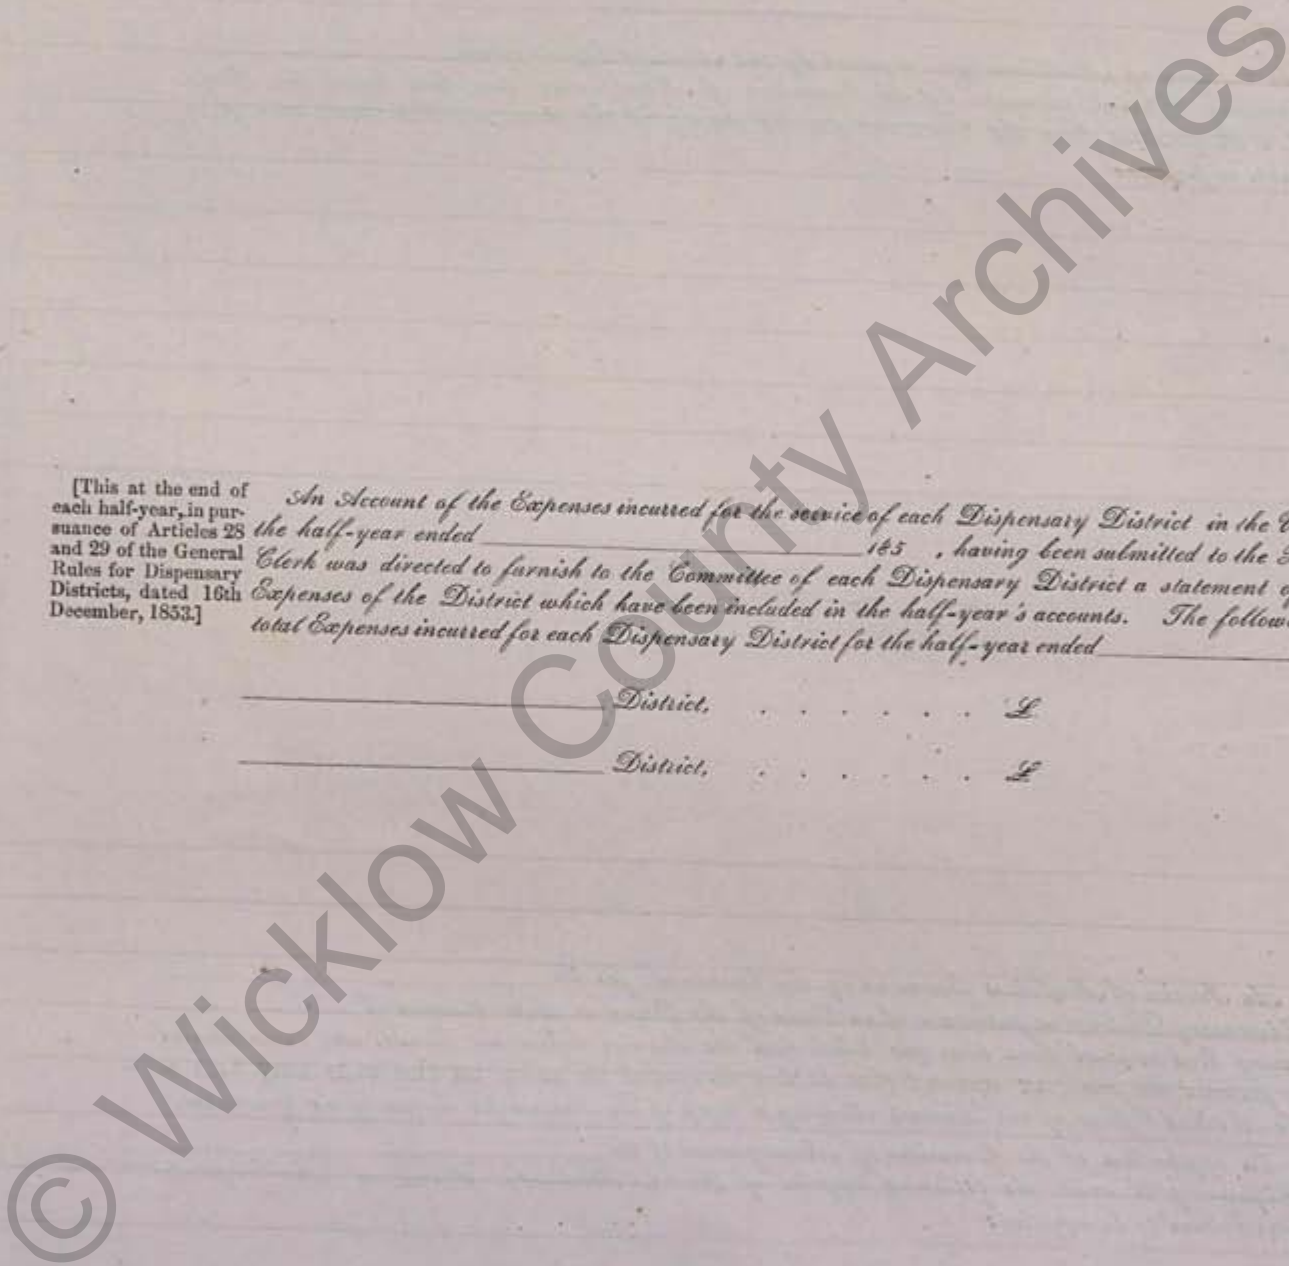 [This at the end of
each half-year, in pur-
suance of Articles 28
and 29 of the General
Rules for Dispensary
Districts, dated 16th
December, 1853.]
An Account of the Expenses incurred for the service of each Dispensary District in the
the half-year ended 185 , having been submitted to the
Clerk was directed to furnish to the Committee of each Dispensary District a statement
Expenses of the District which have been included in the half-year's accounts. The
total Expenses incurred for each Dispensary District for the half-year ended
District, . . . . . . £
District, . . . . . . £
© Wicklow County Archives